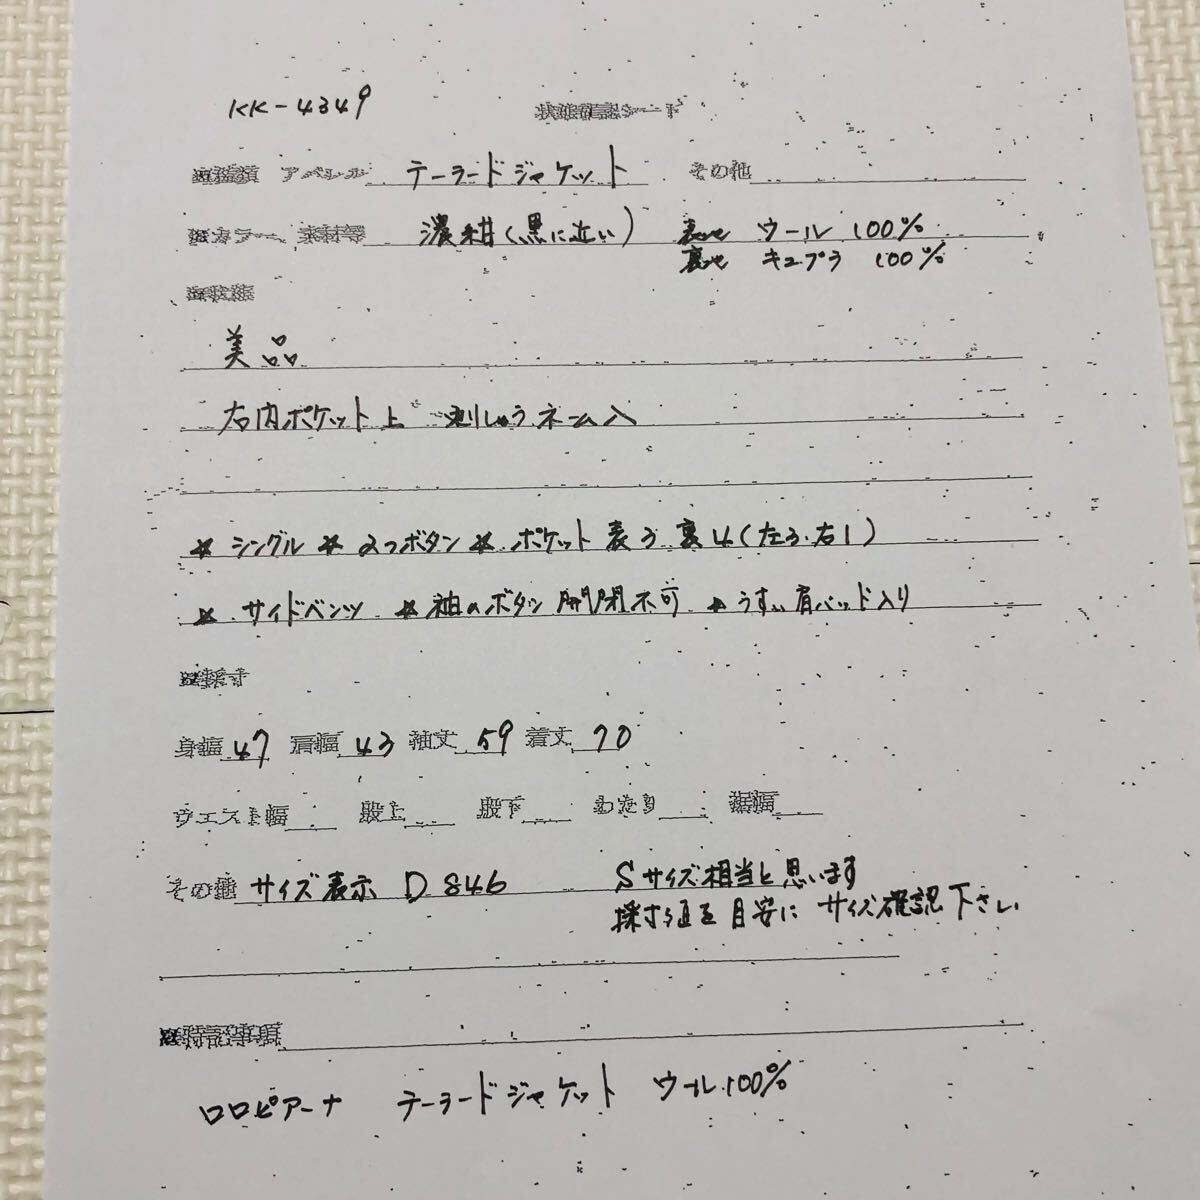 KK-4349 状態確認シート
※種類 アパレル テーラードジャケット その他
※カラー、素材等 濃紺(黒に近い) 表地 ウール 100%
裏地 キュプラ 100%
※状態
美品
右内ポケット上 刺しゅうネーム入
* シングル * 2つボタン * ポケット 表3 裏4(左3.右1)
* サイドベンツ * 袖のボタン開閉不可 * うすい肩パッド入り
※採寸
身幅 47 肩幅 43 袖丈 59 着丈 70
ウエスト幅 股上 股下 わたり 裾幅
その他 サイズ表示 D 846 Sサイズ相当と思います
採寸値を目安に サイズ確認下さい
※特記事項
ロロピアーナ テーラードジャケット ウール100%